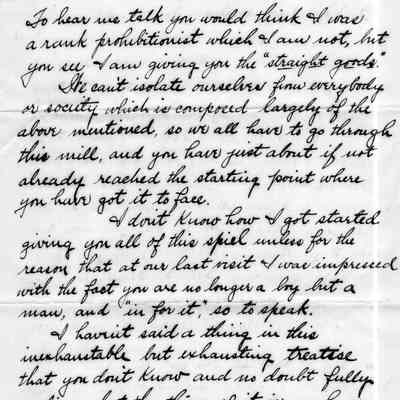 To hear me talk you would think I was
a rank prohibitionist which I am not, but
you see I am giving you the "straight goods".
We can't isolate ourselves from everybody
or society which is composed largely of the
above mentioned, so we all have to go through
this mill, and you have just about if not
already reached the starting point where
you have got it to face.
I don't know how I got started
giving you all of this spiel unless for the
reason that at our last visit I was impressed
with the fact you are no longer a boy but a
man, and "in for it", so to speak.
I haven't said a thing in this
inexhaustable but exhausting treatise
that you don't know and no doubt fully